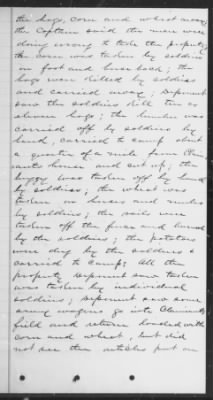 the hogs, corn and wheat away;
the Captain said the men were
doing wrong to take the property;
the corn was taken by soldiers
on foot and horse back; the
hogs were killed by soldiers
and carried away; deponent
saw the soldiers kill ten or
eleven hogs; the lumber was
carried off by soldiers by
hand, carried to camp about
a quarter of a mile from
house, and set up; the
buggy was taken off by hand
by soldiers; the wheat was
taken on horses and mules
by soldiers; the rails were
taken off the fence and burned
by the soldiers; the potatoes
were dug by the soldiers &
carried to camp; All the
property deponent saw taken
was taken by individual
soldiers; deponent saw some
army wagons go into
field and return loaded with
corn and wheat, but did
not see the articles put on